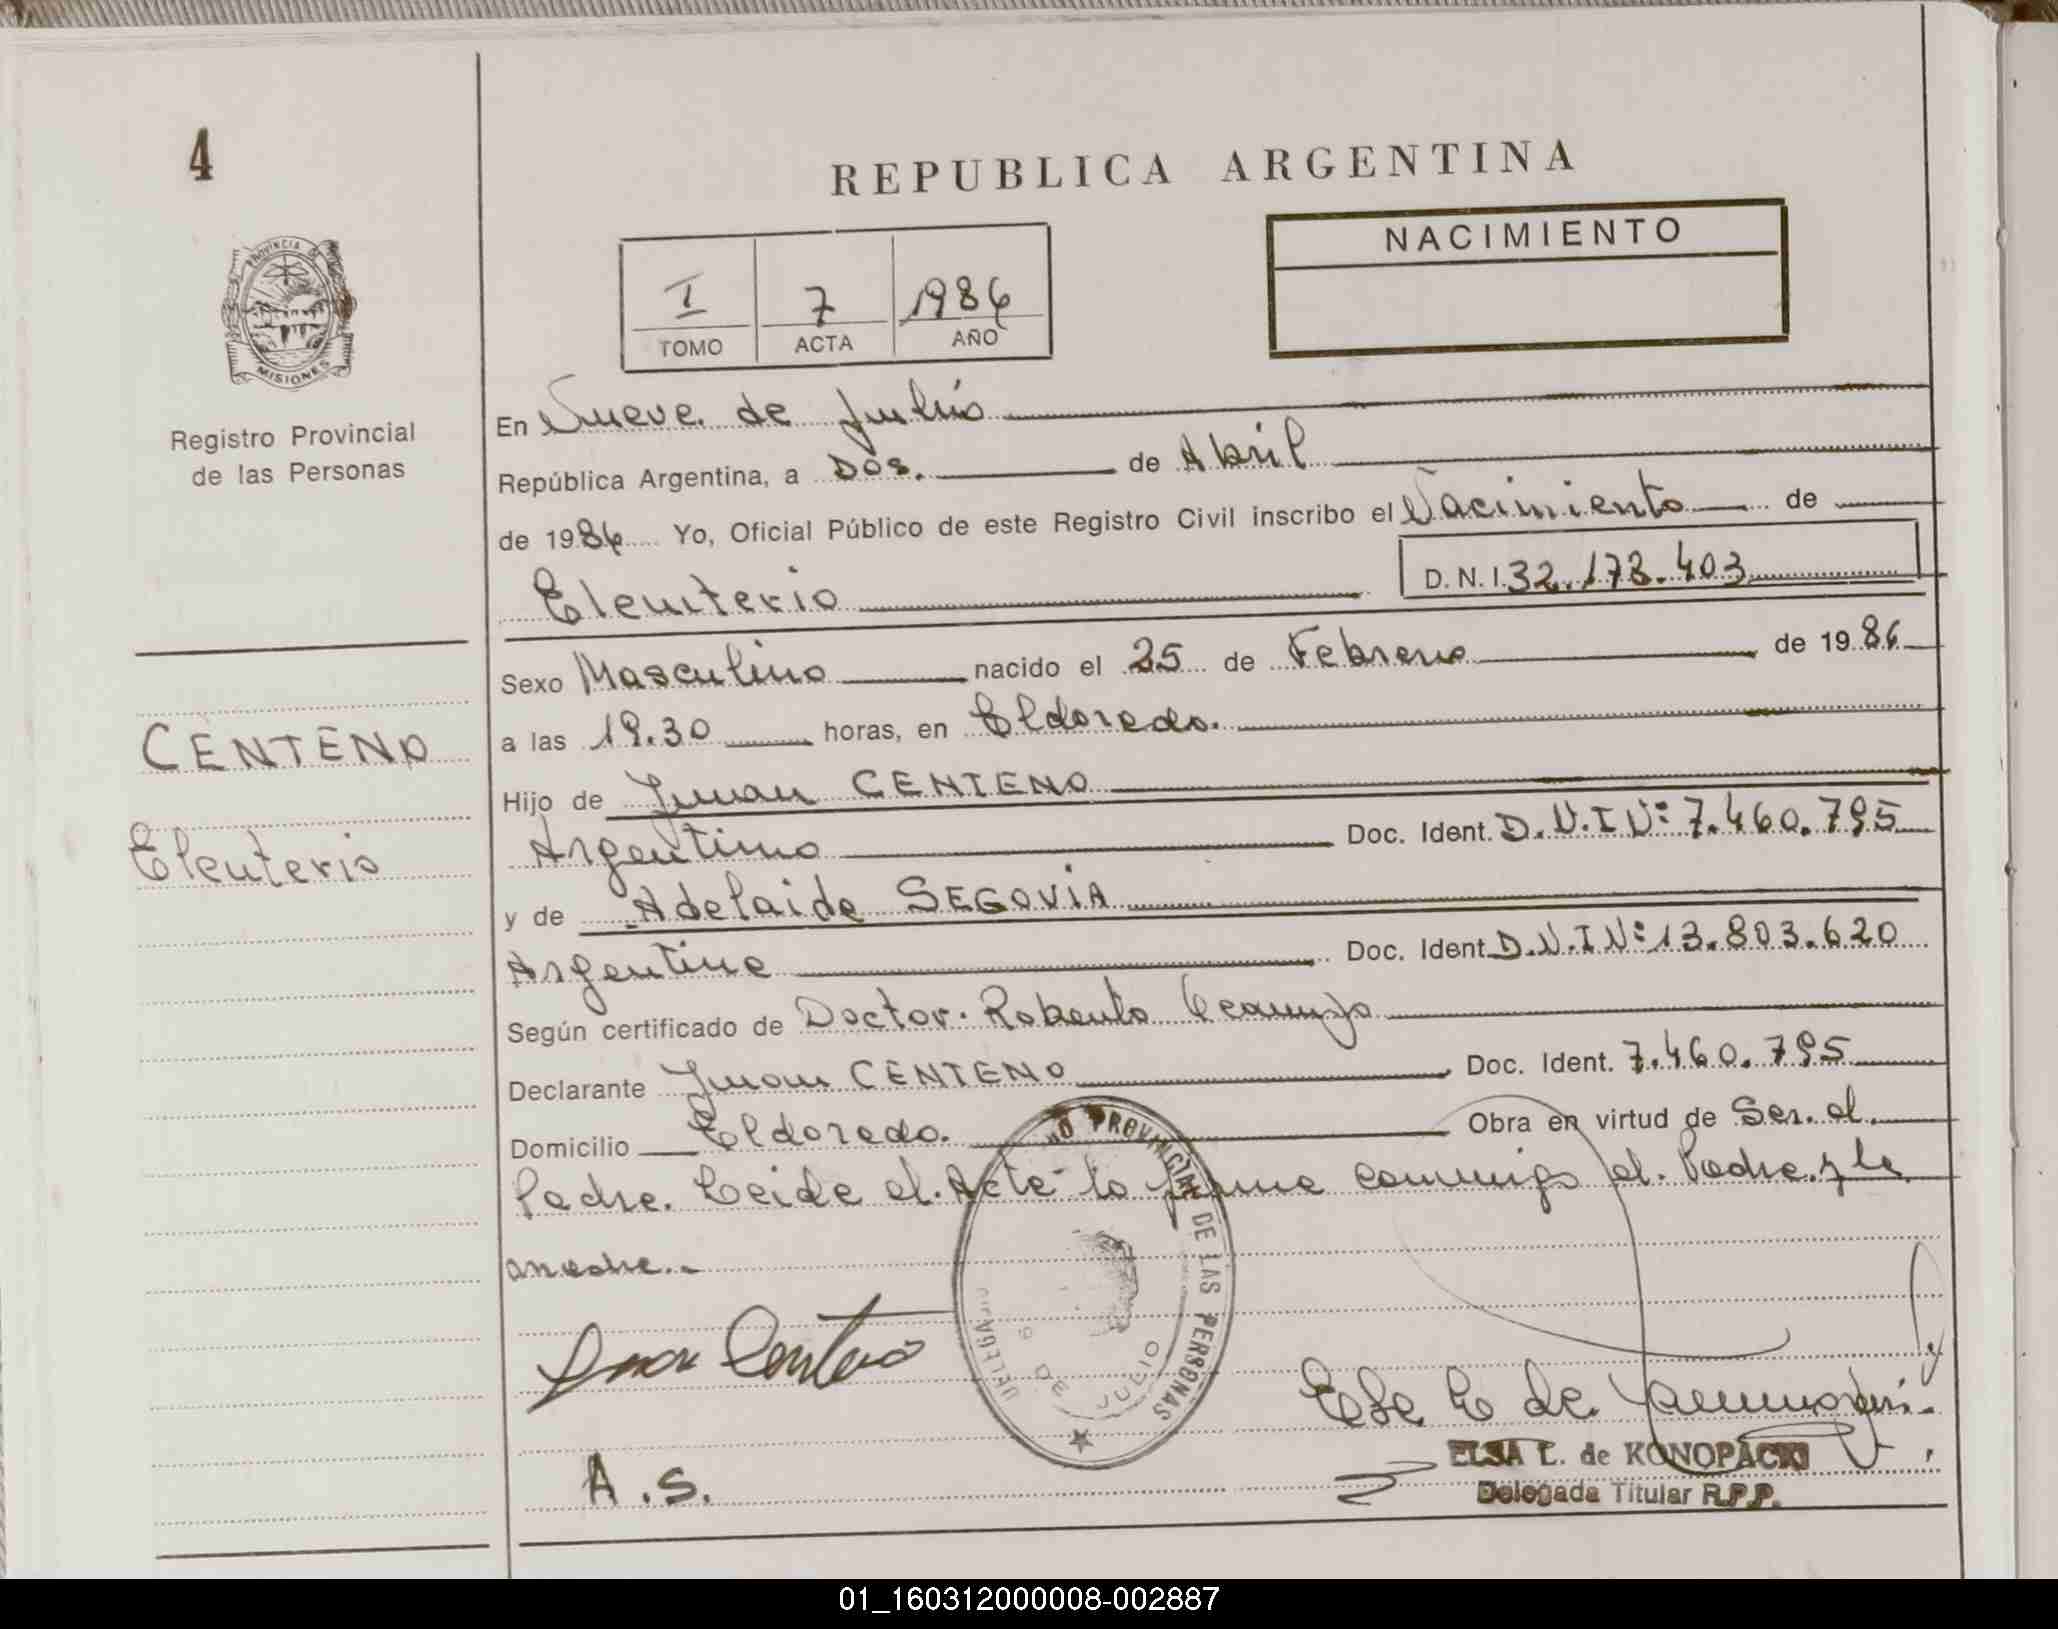 4
REPUBLICA ARGENTINA
PROVINCIA DE
MISIONES
Registro Provincial
de las Personas
NACIMIENTO
I 7 1986
TOMO ACTA AÑO
En Nueve de Julio
República Argentina, a Dos. de Abril
de 1986 Yo, Oficial Público de este Registro Civil inscribo el Nacimiento de
Eleuterio D.N.I. 32.173.403
Sexo Masculino nacido el 25 de Febrero de 1986
CENTENO
a las 19.30 horas, en Eldorado.
Hijo de Juan CENTENO
Eleuterio
Argentino Doc. Ident. D.N.I Nº 7.460.795
y de Adelaida SEGOVIA
Argentina Doc. Ident. D.N.I Nº 13.803.620
Según certificado de Doctor. Roberto Ocampo
Declarante Juan CENTENO Doc. Ident. 7.460.795
Domicilio Eldorado. Obra en virtud de Ser. el
Padre. Leida el Acta la firma conmigo el Padre y la
madre.-
Juan Centeno
PROVINCIAL DE LAS PERSONAS
9 DE JULIO
A.S.
ELSA L. de KONOPACKI
Delegada Titular R.P.P.
01_160312000008-002887